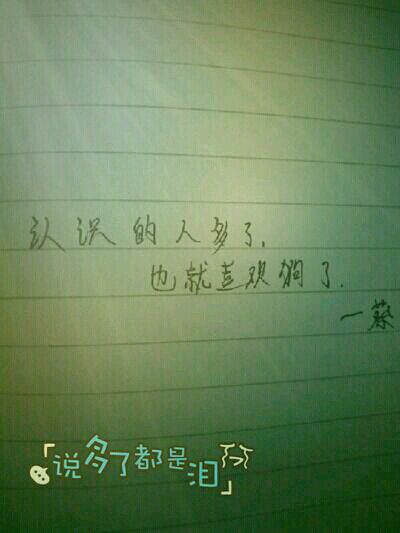 认识的人多了,
也就喜欢狗了.
一蔡
「说多了都是泪」